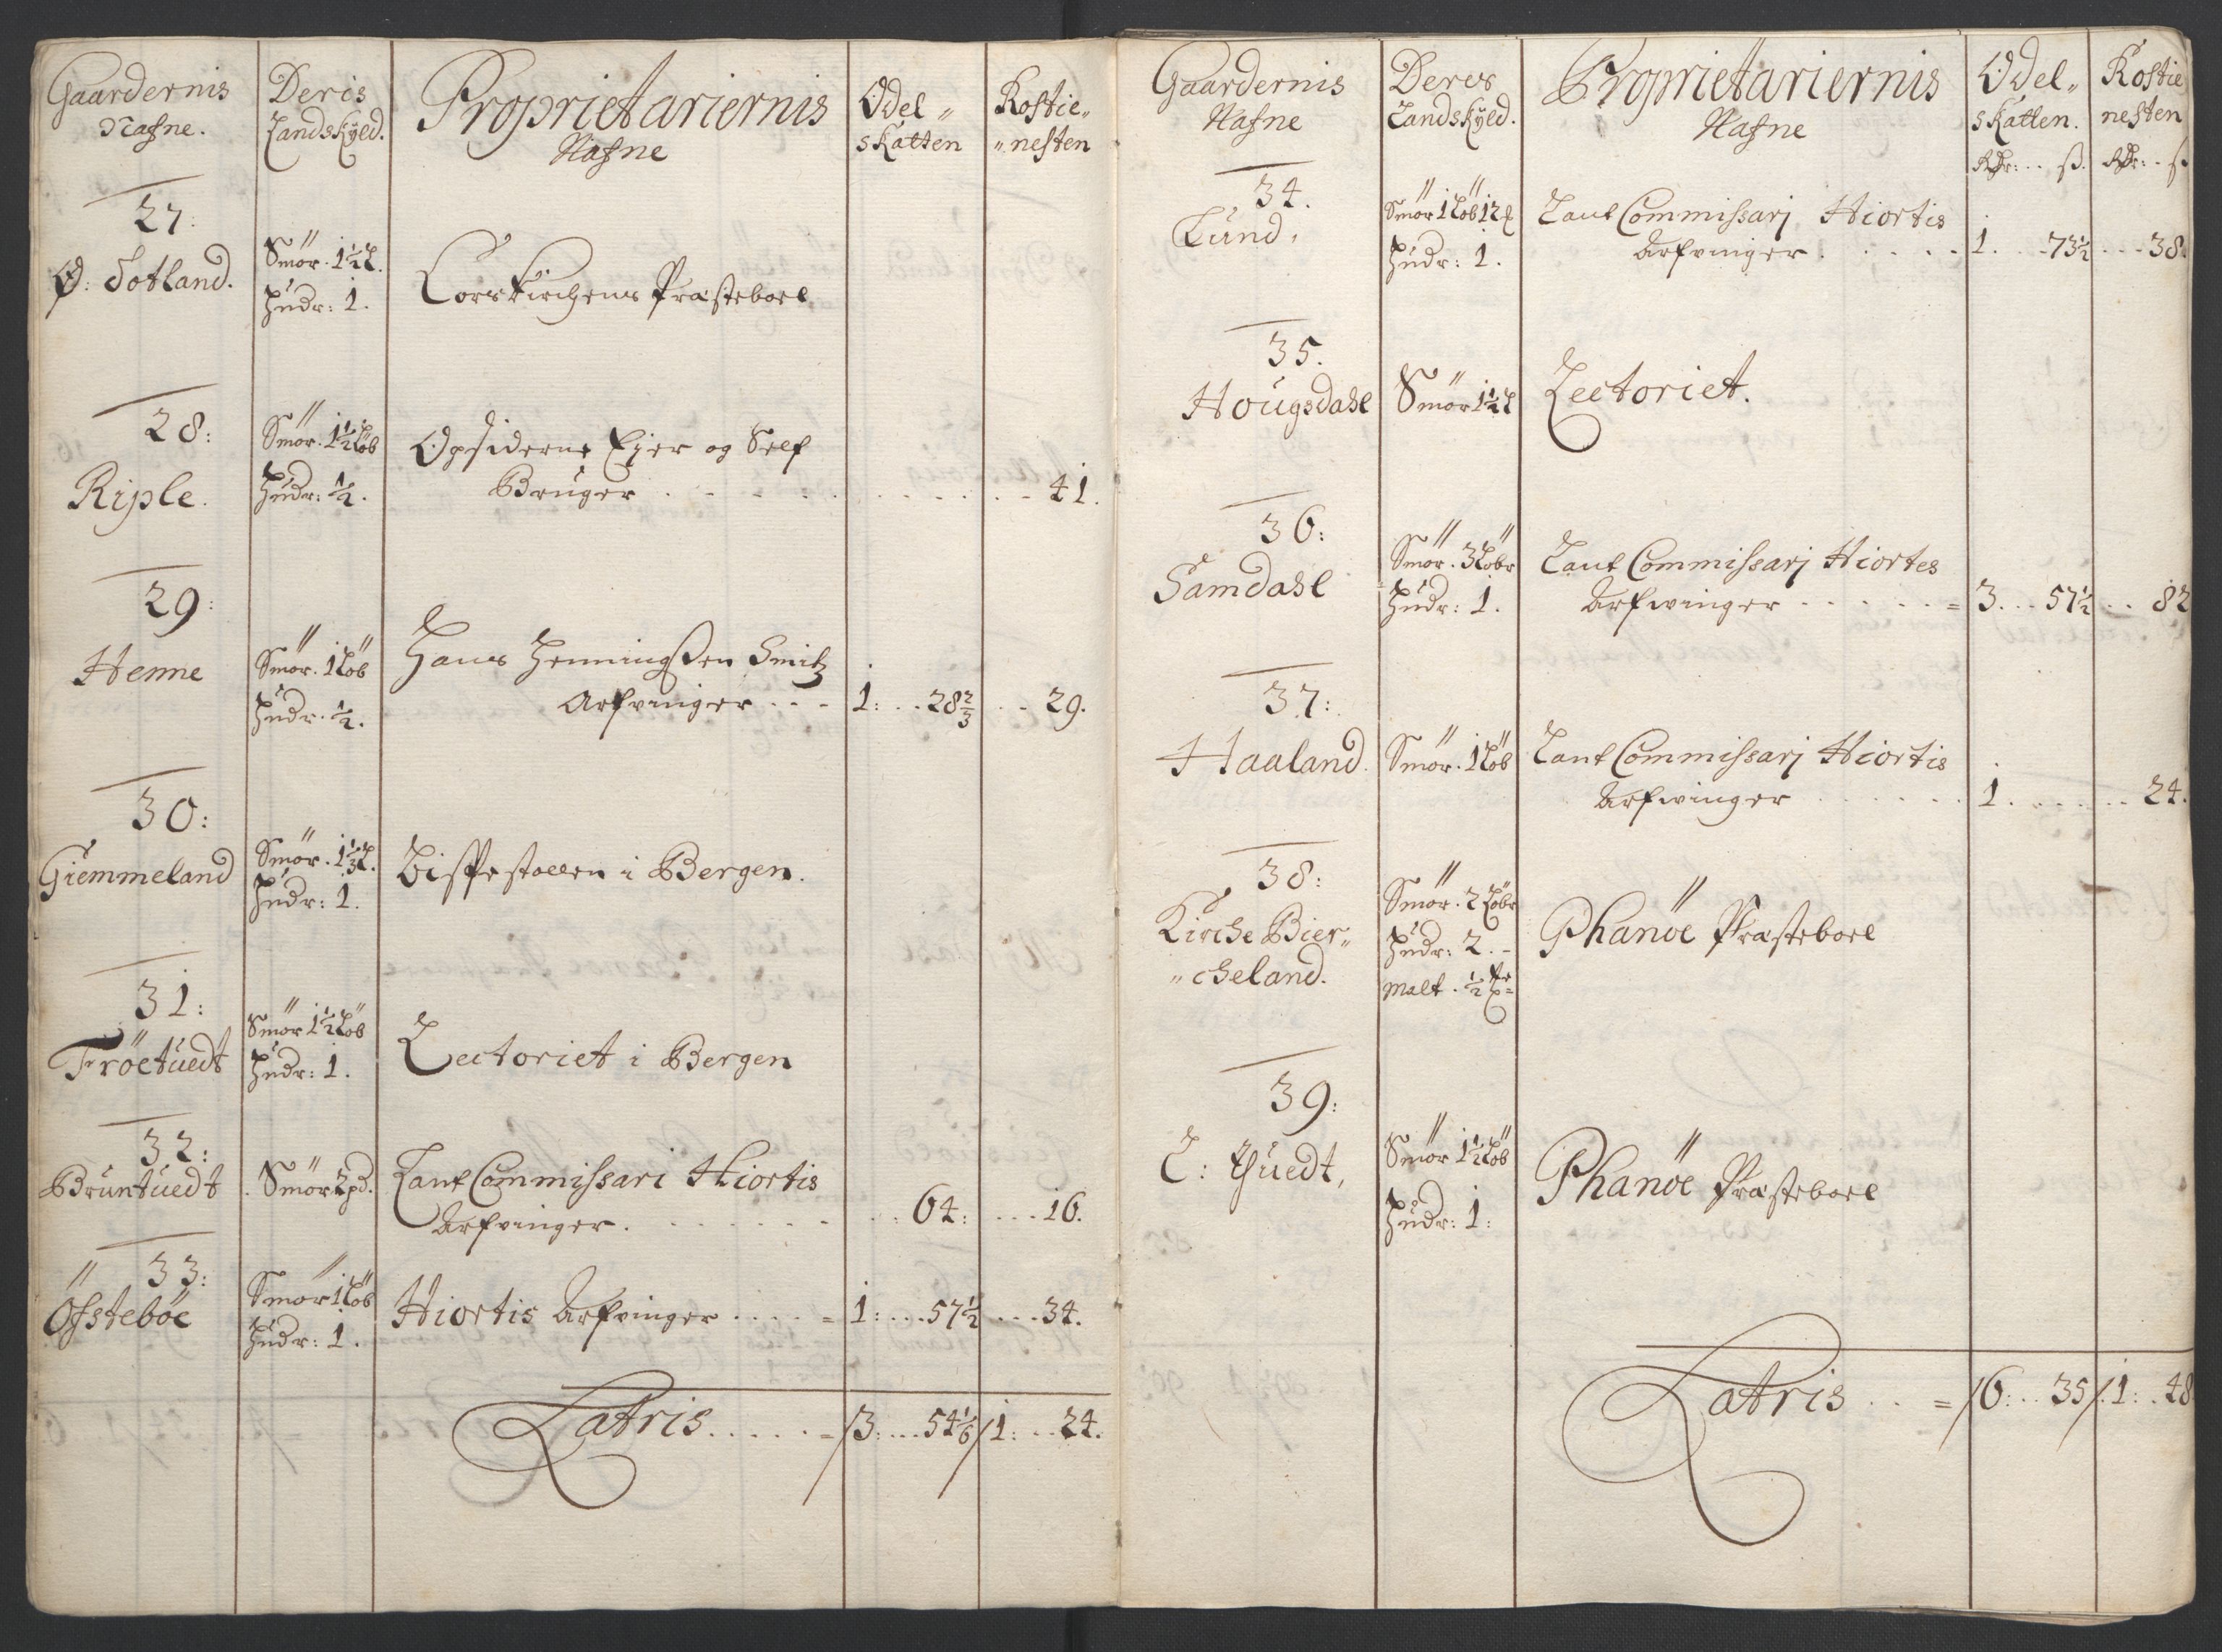 Gaardernis
Nafne.
Deris
Landskyld.
Proprietariernis
Nafne
Odel„
skatten
Rostie„
„nesten
27:
Ø: Totland.
Smör. 1½ L.
Hudr: 1.
Corskirchens Præsteboel
28:
Riple.
Smör. 1½ Löb
Hudr: ½.
Opsiderne Ejer og Self
Bruger . . . . . . 41.
29:
Henne
Smör. 1 Löb
Hudr. ½.
Hans Henningssen Smitz
Arfvinger . . . 1: . . 28⅔ . . 29.
30:
Giemmeland
Smör. 1⅓ L.
Hudr: 1.
Bispestolen i Bergen.
31:
Tröetuedt
Smör 1½ Löb
Hudr: 1.
Lectoriet i Bergen
32:
Bruntuedt
Smör 2 pd.
Lant Commissari Hiortis
Arfvinger. . . . . . 64: . . . 16.
33:
Öfsteböe
Smör 1 Löb
Hudr: 1.
Hiortis Arfvinger . . . . = 1: . . . 57½ . . . 34.
Latris. . . . . = /3: . . . 54⅙ /1: . . 24.
Gaardernis
Nafne
Deres
Landskyld.
Proprietariernis
Nafne
Odel„
skatten.
Rdr: . . ß.
Rostie
nesten
Rdr: . . ß
34.
Lund.
Smör 1 Löb 12
Hudr: 1.
Lant Commissarj Hiortis
Arfvinger . . . . . 1. . . 73½ . . . 38.
35.
Hougsdahl
Smör 1½ L
Lectoriet.
36:
Samdahl
Smör. 3 Löbr
Hudr: 1.
Lant Commissarj Hiortes
Arfwinger . . . . . = 3. . . 57½ . . 82
37:
Haaland.
Smör. 1 Löb
Lant Commissarj Hiortis
Arfwinger . . . . . . 1. . . . . . . 24.
38:
Kirche Bier„
„cheland.
Smör. 2 Löbr
Hudr: 2. -
Malt. ½
Phanöe Præsteboel
39:
L: Thuedt,
Smör 1½ Löb
Hudr: 1:
Phanöe Præsteboel
Latris . . = /6: . . 35 /. 1: . 48